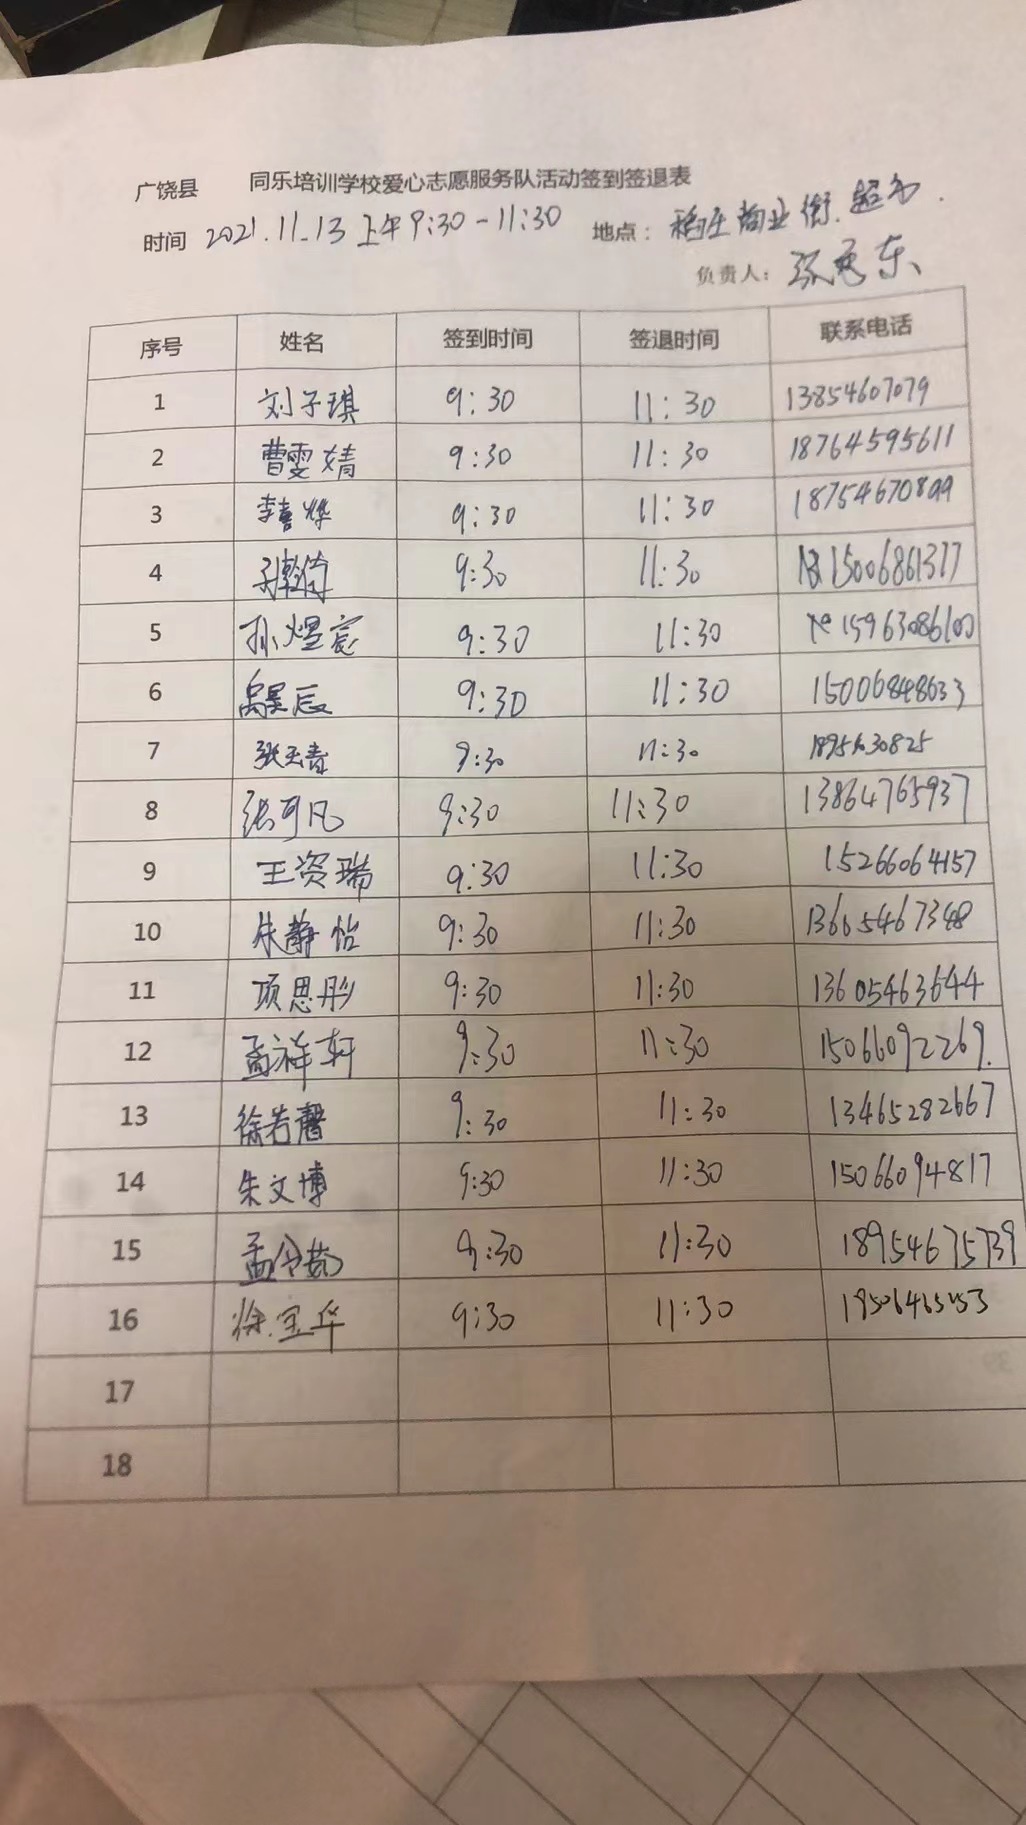 广饶县 同乐培训学校爱心志愿服务队活动签到签退表
时间 2021.11.13 上午9:30-11:30 地点：稻庄商业街.超市.
负责人：张
序号 姓名 签到时间 签退时间 联系电话
1 刘子琪 9:30 11:30 13854607079
2 曹雯婧 9:30 11:30 18764595611
3 李喜烨 9:30 11:30 18754670899
4 9:30 11:30 15006861377
5 孙煜宸 9:30 11:30 15963086100
6 禹昊辰 9:30 11:30 15006848633
7 张玉青 9:30 11:30
8 张可凡 9:30 11:30 13864765937
9 王资瑞 9:30 11:30 15266064157
10 朱静怡 9:30 11:30 13665467348
11 项思彤 9:30 11:30 13605463644
12 孟祥轩 9:30 11:30 15066092269.
13 徐若馨 9:30 11:30 13465282667
14 朱文博 9:30 11:30 15066094817
15 孟令茹 9:30 11:30 18954675739
16 徐宝华 9:30 11:30
17
18